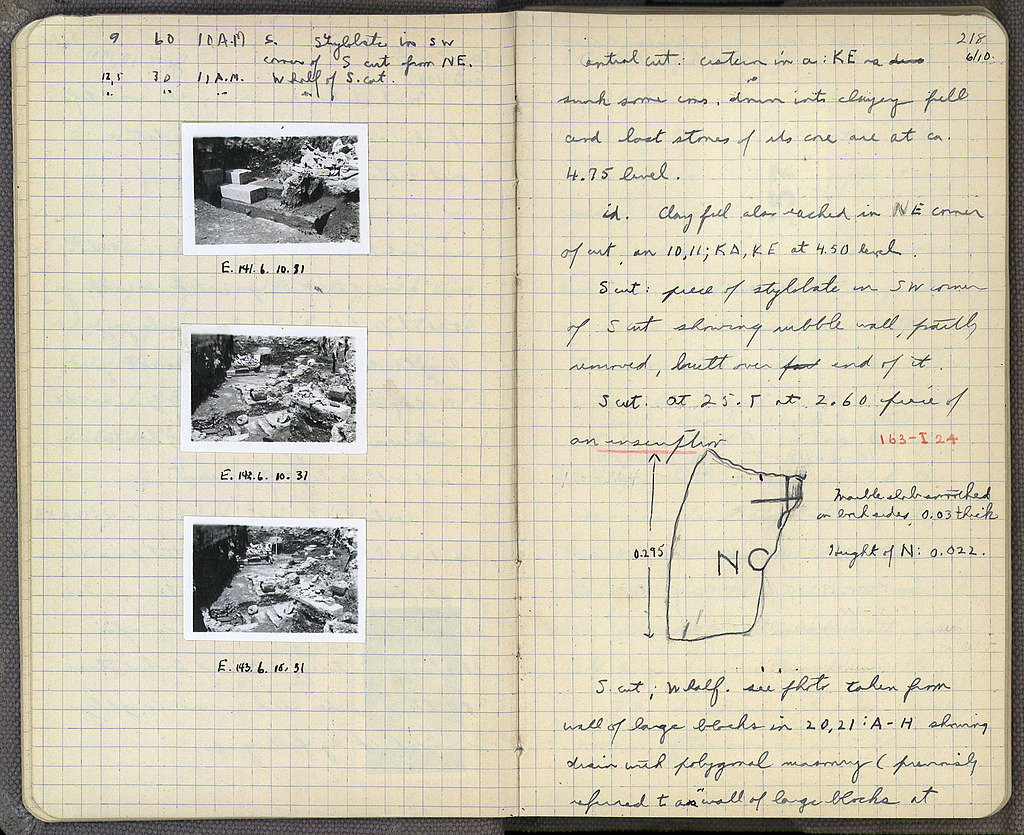 9 60 10 A.M S. Stylobate in SW
corner of S cut from NE.
12,5 30 11 A.M. W half of S. cut.
" " " "
E. 141. 6. 10. 31
E. 142. 6. 10. 31
E. 143. 6. 10. 31
218
6/10
Central cut: cistern in a: KE is
sunk some cms. down into clayey fill
and last stones of its core are at ca.
4.75 level.
id. Clay fill also reached in NE corner
of cut, on 10, 11; KD, KE at 4.50 level.
S cut: piece of stylobate in SW corner
of S cut showing rubble wall, partly
removed, built over end of it.
S cut. at 25.T at 2.60 piece of
an inscription
163-I 24
Marble slab smoothed
on both sides, 0.03 thick
0.295
NO
Height of N: 0.022.
S. cut; W half. see photo taken from
wall of large blocks in 20,21: A-H showing
drain with polygonal masonry (previously
referred to as "wall of large blocks at